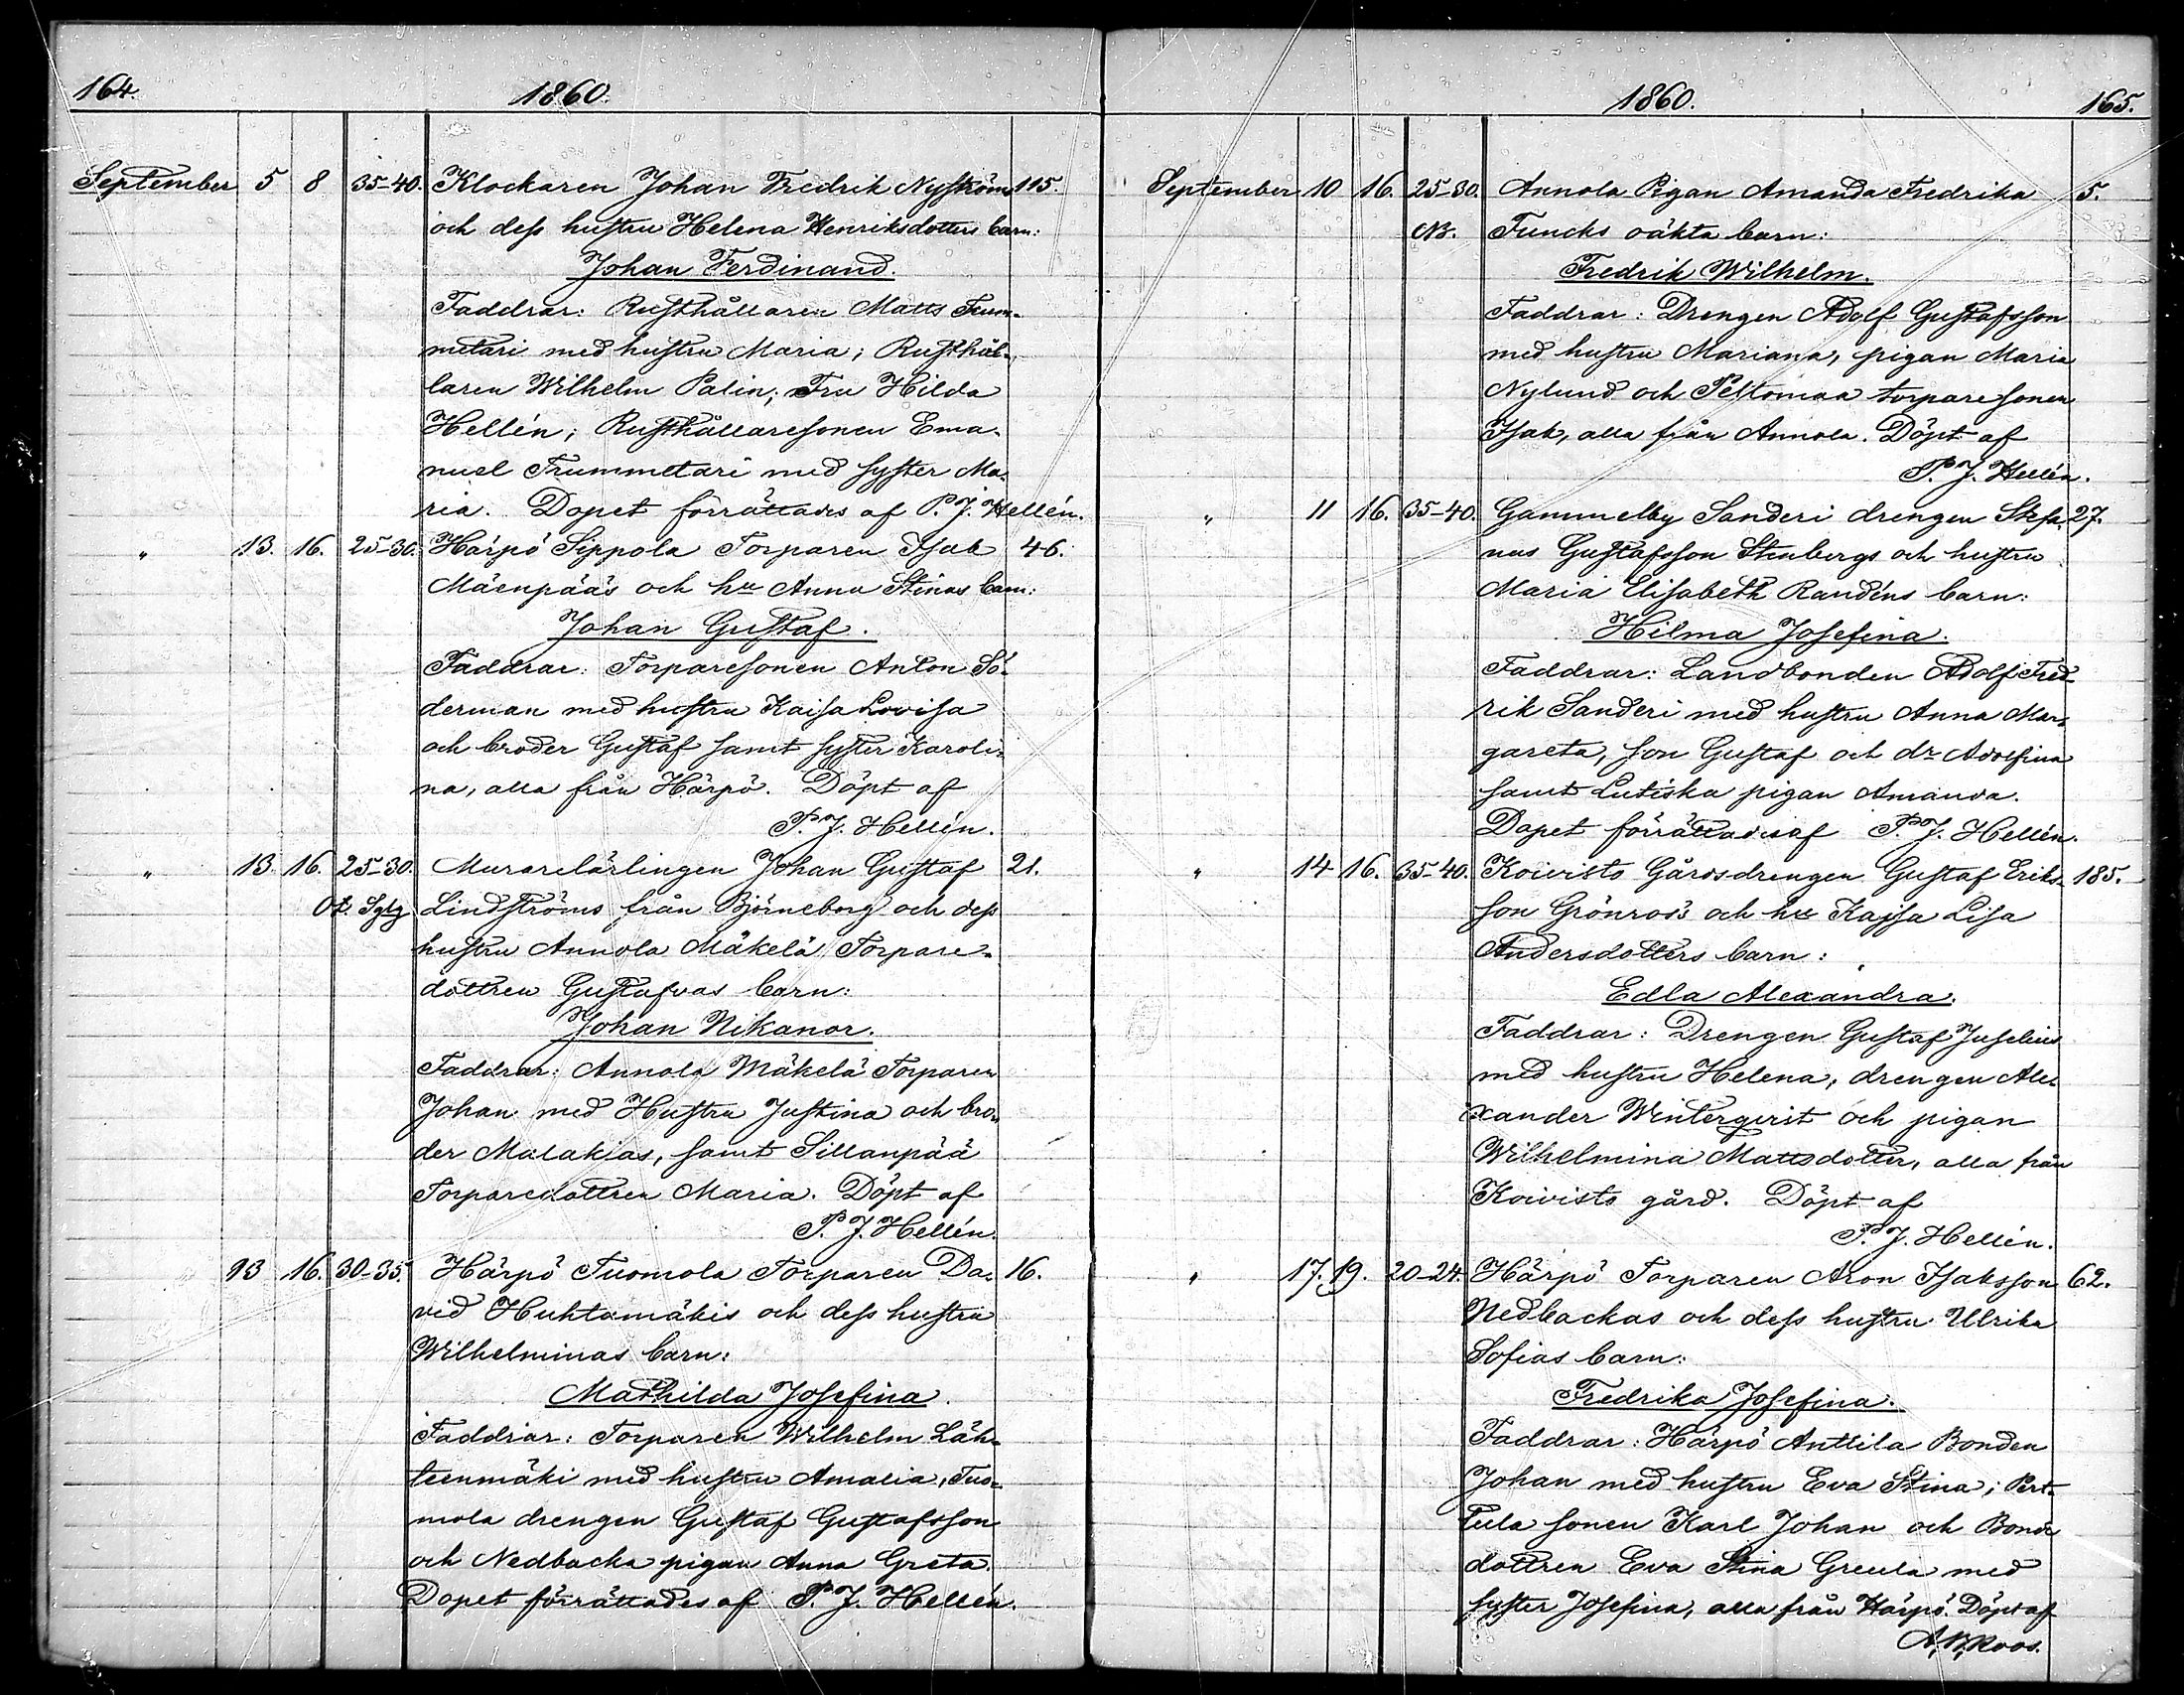 164.
1860.
September 5 8 35-40. Klockaren Johan Fredrik Nyströms 115.
och dess hustru Helena Henriksdotters barn:
Johan Ferdinand.
Faddrar: Rusthållaren Matts Trum-
metari med hustru Maria; Rusthål-
laren Wilhelm Palin; Fru Hilda
Hellén; Rusthållaresonen Ema-
nuel Trummetari med syster Ma-
ria. Dopet förrättades af P. J. Hellén.
" 13. 16. 25-30. Härpö Sippola Torparen Isak 46.
Mäenpääs och hu Anna Stinas barn:
Johan Gustaf.
Faddrar: Torparesonen Anton Sö-
derman med hustru Kaisa Lovisa
och broder Gustaf samt syster Karoli-
na, alla från Härpö. Döpt af
P. J. Hellén.
" 13. 16. 25-30. Murarelärlingen Johan Gustaf 21.
Lindströms från Björneborg och dess
hustru Annola Mäkelä Torpare-
dottren Gustafvas barn:
Johan Nikanor.
Faddrar: Annola Mäkelä Torparen
Johan med Hustru Justina och bro-
der Malakias, samt Sillanpää
Torparedottren Maria. Döpt af
P. J. Hellén.
13 16. 30-35. Härpö Tuomola Torparen Da- 16.
vid Huhtamäkis och dess hustru
Wilhelminas barn:
Mathilda Josefina.
Faddrar: Torparen Wilhelm Läh-
teenmäki med hustru Amalia, Tuo-
mola drengen Gustaf Gustafsson
och Nedbacka pigan Anna Greta.
Dopet förrättades af P. J. Hellén.
1860.
165.
September 10 16. 25-30. Annola Pigan Amanda Fredrika 5.
NB. Funcks oäkta barn:
Fredrik Wilhelm.
Faddrar: Drengen Adolf Gustafsson
med hustru Mariana, pigan Maria
Nylund och Peltomaa torparesonen
Isak, alla från Annola. Döpt af
P. J. Hellén.
" 11 16. 35-40. Gammelby Sanderi drengen Stefa- 27.
nus Gustafsson Stenbergs och hustru
Maria Elisabeth Randéns barn:
Hilma Josefina.
Faddrar: Landbonden Adolf Fred-
rik Sanderi med hustru Anna Mar-
gareta, son Gustaf och dr Adolfina
samt Lutiska pigan Amanda.
Dopet förrättades af P. J. Hellén.
" 14 16. 35-40. Koivisto Gårdsdrengen Gustaf Eriks- 185.
son Grönroos och hu Kajsa Lisa
Andersdotters barn:
Edla Alexandra.
Faddrar: Drengen Gustaf Juselius
med hustru Helena, drengen Ale-
xander Winterqvist och pigan
Wilhelmina Mattsdotter, alla från
Koivisto gård. Döpt af
P. J. Hellén.
" 17. 19. 20-24. Härpö Torparen Aron Isaksson 62.
Nedbackas och dess hustru Ulrika
Sofias barn:
Fredrika Josefina.
Faddrar: Härpö Anttila Bonden
Johan med hustru Eva Stina; Pert-
tula sonen Karl Johan och Bonde
dottren Eva Stina Greula med
syster Josefina, alla från Härpö. Döpt af
A. W. Roos.